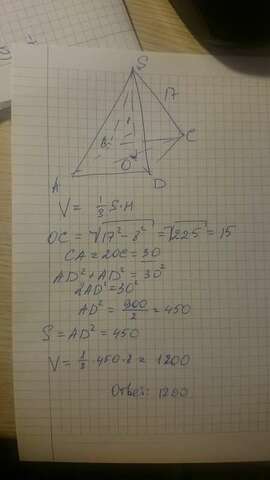 S
17
B
C
O
A
D
V = 1/3 S·H
OC = √17² - 8² = √225 = 15
CA = 2OC = 30
AD² + AD² = 30²
2AD² = 30²
AD² = 900/2 = 450
S = AD² = 450
V = 1/3 · 450 · 8 = 1200
Ответ: 1200